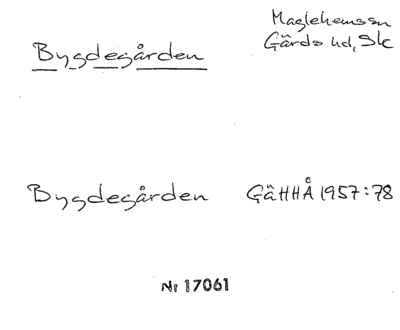 Maglehems sn
Bygdegården Gärds hd, Sk
Bygdegården GÄHHÅ 1957:78
Nr 17061